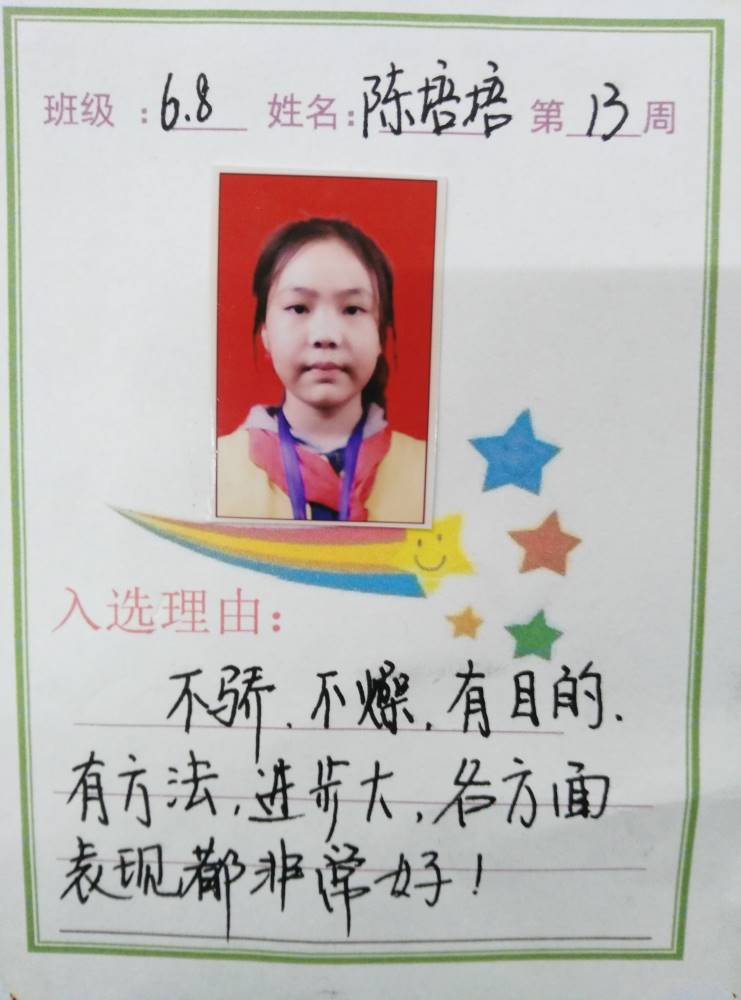 班级：6.8 姓名：陈培培 第13周
入选理由：
不骄、不燥，有目的、
有方法，进步大，各方面
表现都非常好！